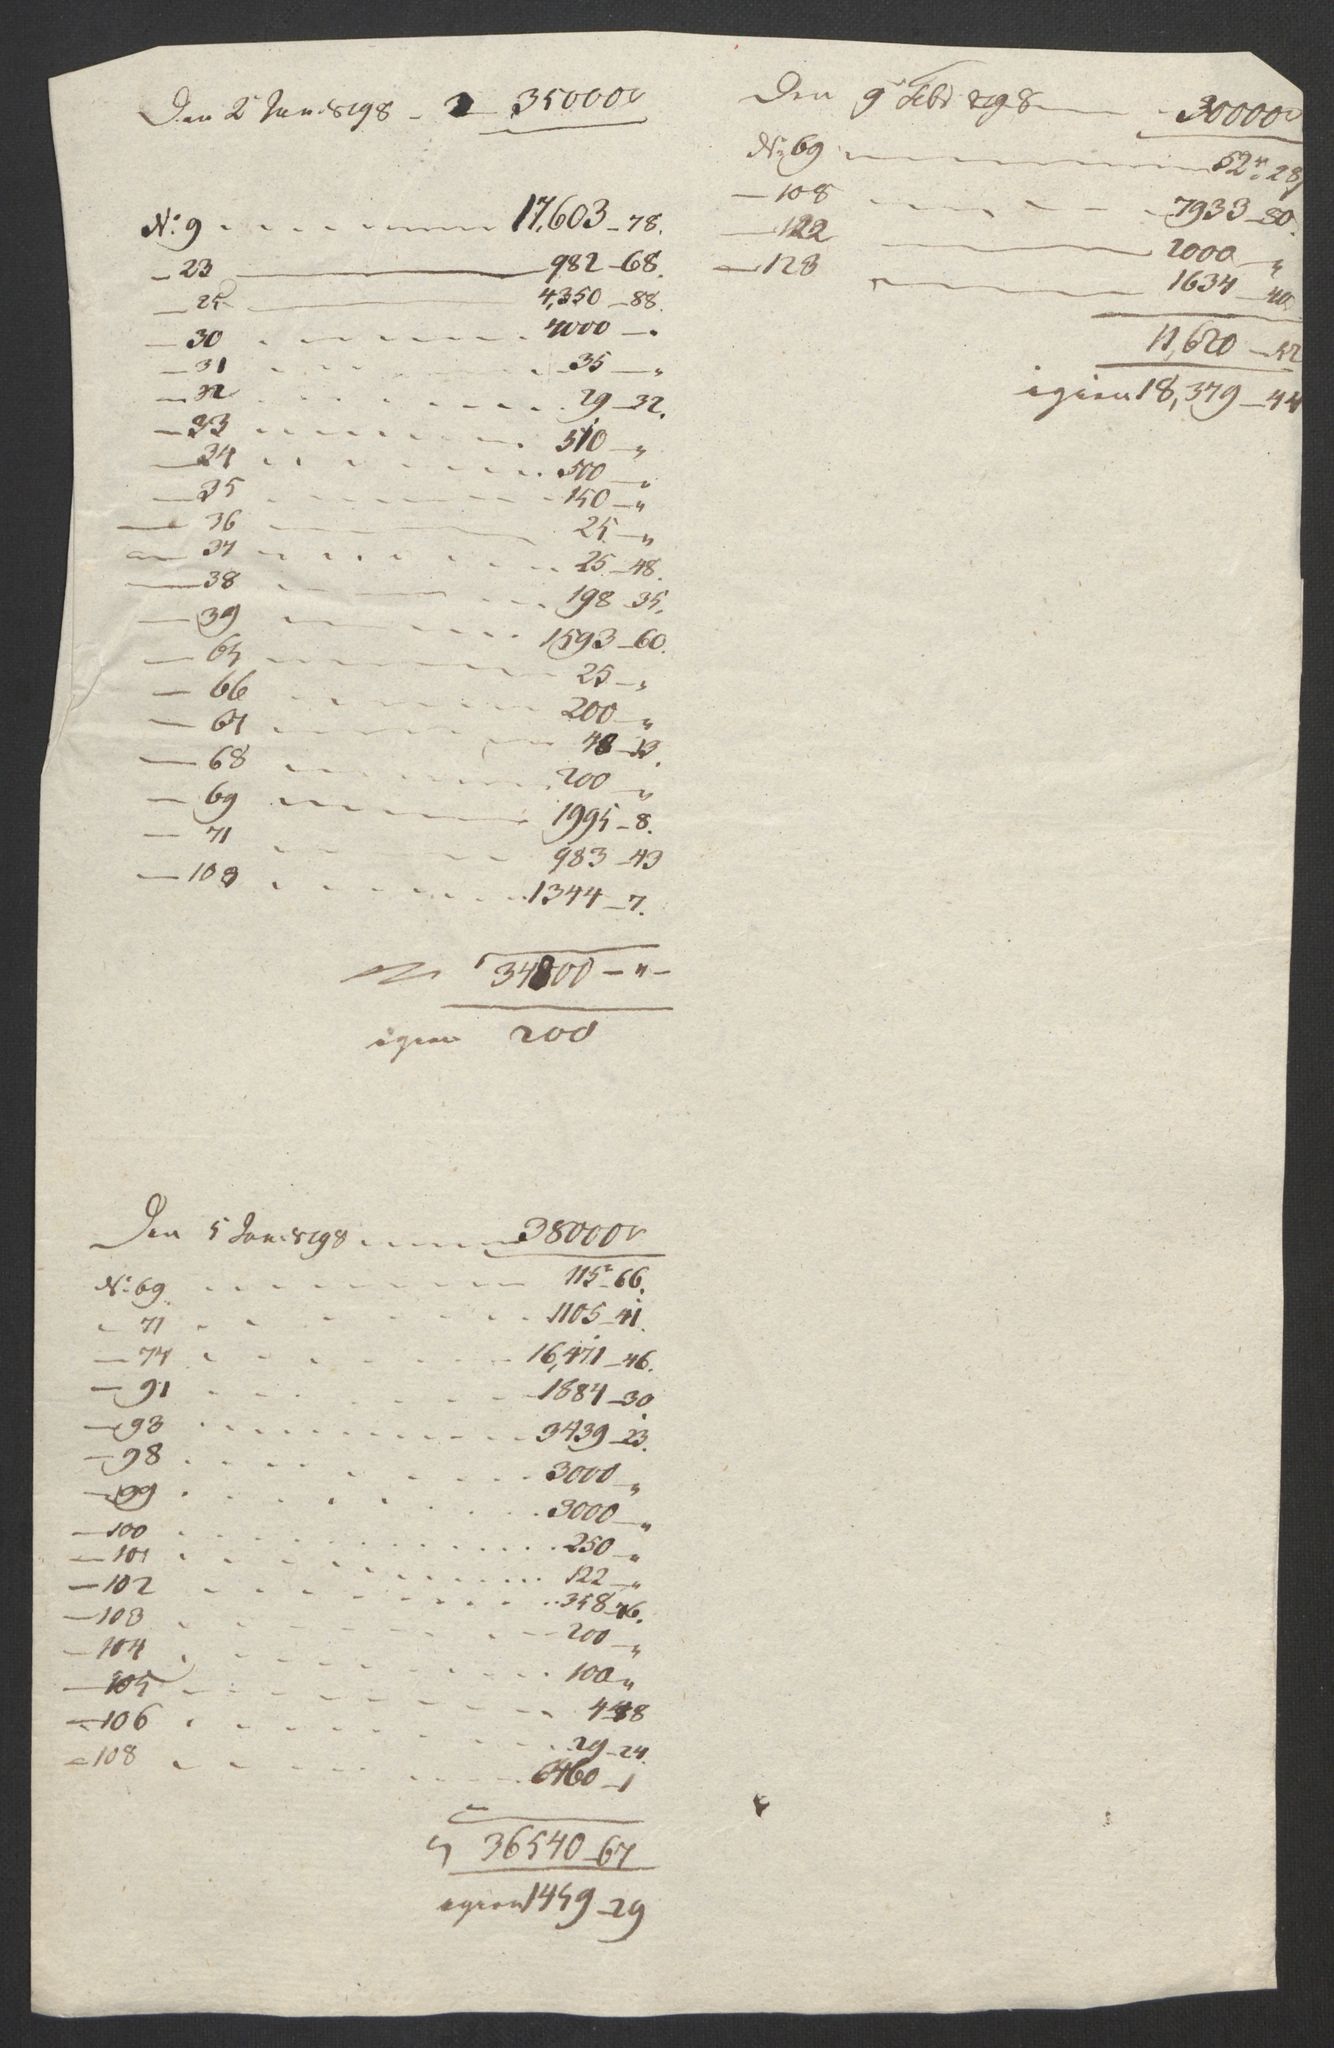 Den 2 Jan: 8198 - 35000 r
No: 9 17,603 - 78.
- 23 982 - 68.
- 25 4,350 - 88.
- 30 4000 - "
- 31 35 - "
- 32 29 - 32.
- 33 510 - "
- 34 500 - "
- 35 150 - "
- 36 25 - "
- 37 25 - 48.
- 38 198 - 35.
- 39 1593 - 60.
- 65 25 - "
- 66 200 - "
- 67 48 - 13.
- 68 200 - "
- 69 1995 - 8.
- 71 983 - 43
- 108 1344 - 7.
34800 - " -
igien 200
Den 5 Jan: 8198 38000 r
No: 69 115 r - 66.
- 71 1105 - 41.
- 74 16,471 - 46.
- 91 1884 - 30
- 93 3439 - 23.
- 98 3000 - "
- 99 3000 - "
- 100 250 - "
- 101 122 - "
- 102 358 - 76.
- 103 200 - "
- 104 100 "
- 105 4 - 88
- 106 29 - 24.
- 108 6460 - 1
36540 - 67
igien 1459 - 29
Den 9 Febr 8198 30000 r
No: 69 52 r: 28
- 108 7933 - 80.
- 122 2000 - "
- 123 1634 - 40
11,620 - 52
igien 18,379 - 44